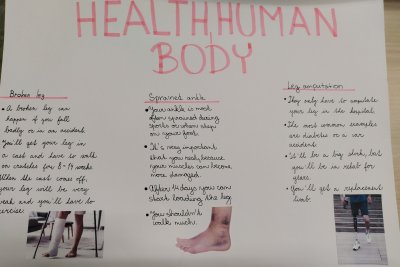 HEALTH, HUMAN
BODY
Broken leg
• A broken leg can
happen if you fall
badly or in an accident.
You'll get your leg in
a cast and have to walk
on crutches for 8-14 weeks
When the cast comes off,
your leg will be very
weak and you'll have to
exercise.
Sprained ankle
• Your ankle is most
often sprained during
sports or when step
on your foot.
• It's very important
that you rest, because
your muscles can become
more damaged.
• After 14 days you can
start loading the leg.
• You shouldn't
walk much.
Leg amputation
• They only have to amputate
your leg in the hospital.
• The most common examples
are diabetes or a car
accident.
• It'll be a big shock, but
you'll be in rehab for
years.
• You'll get a replacement
limb.